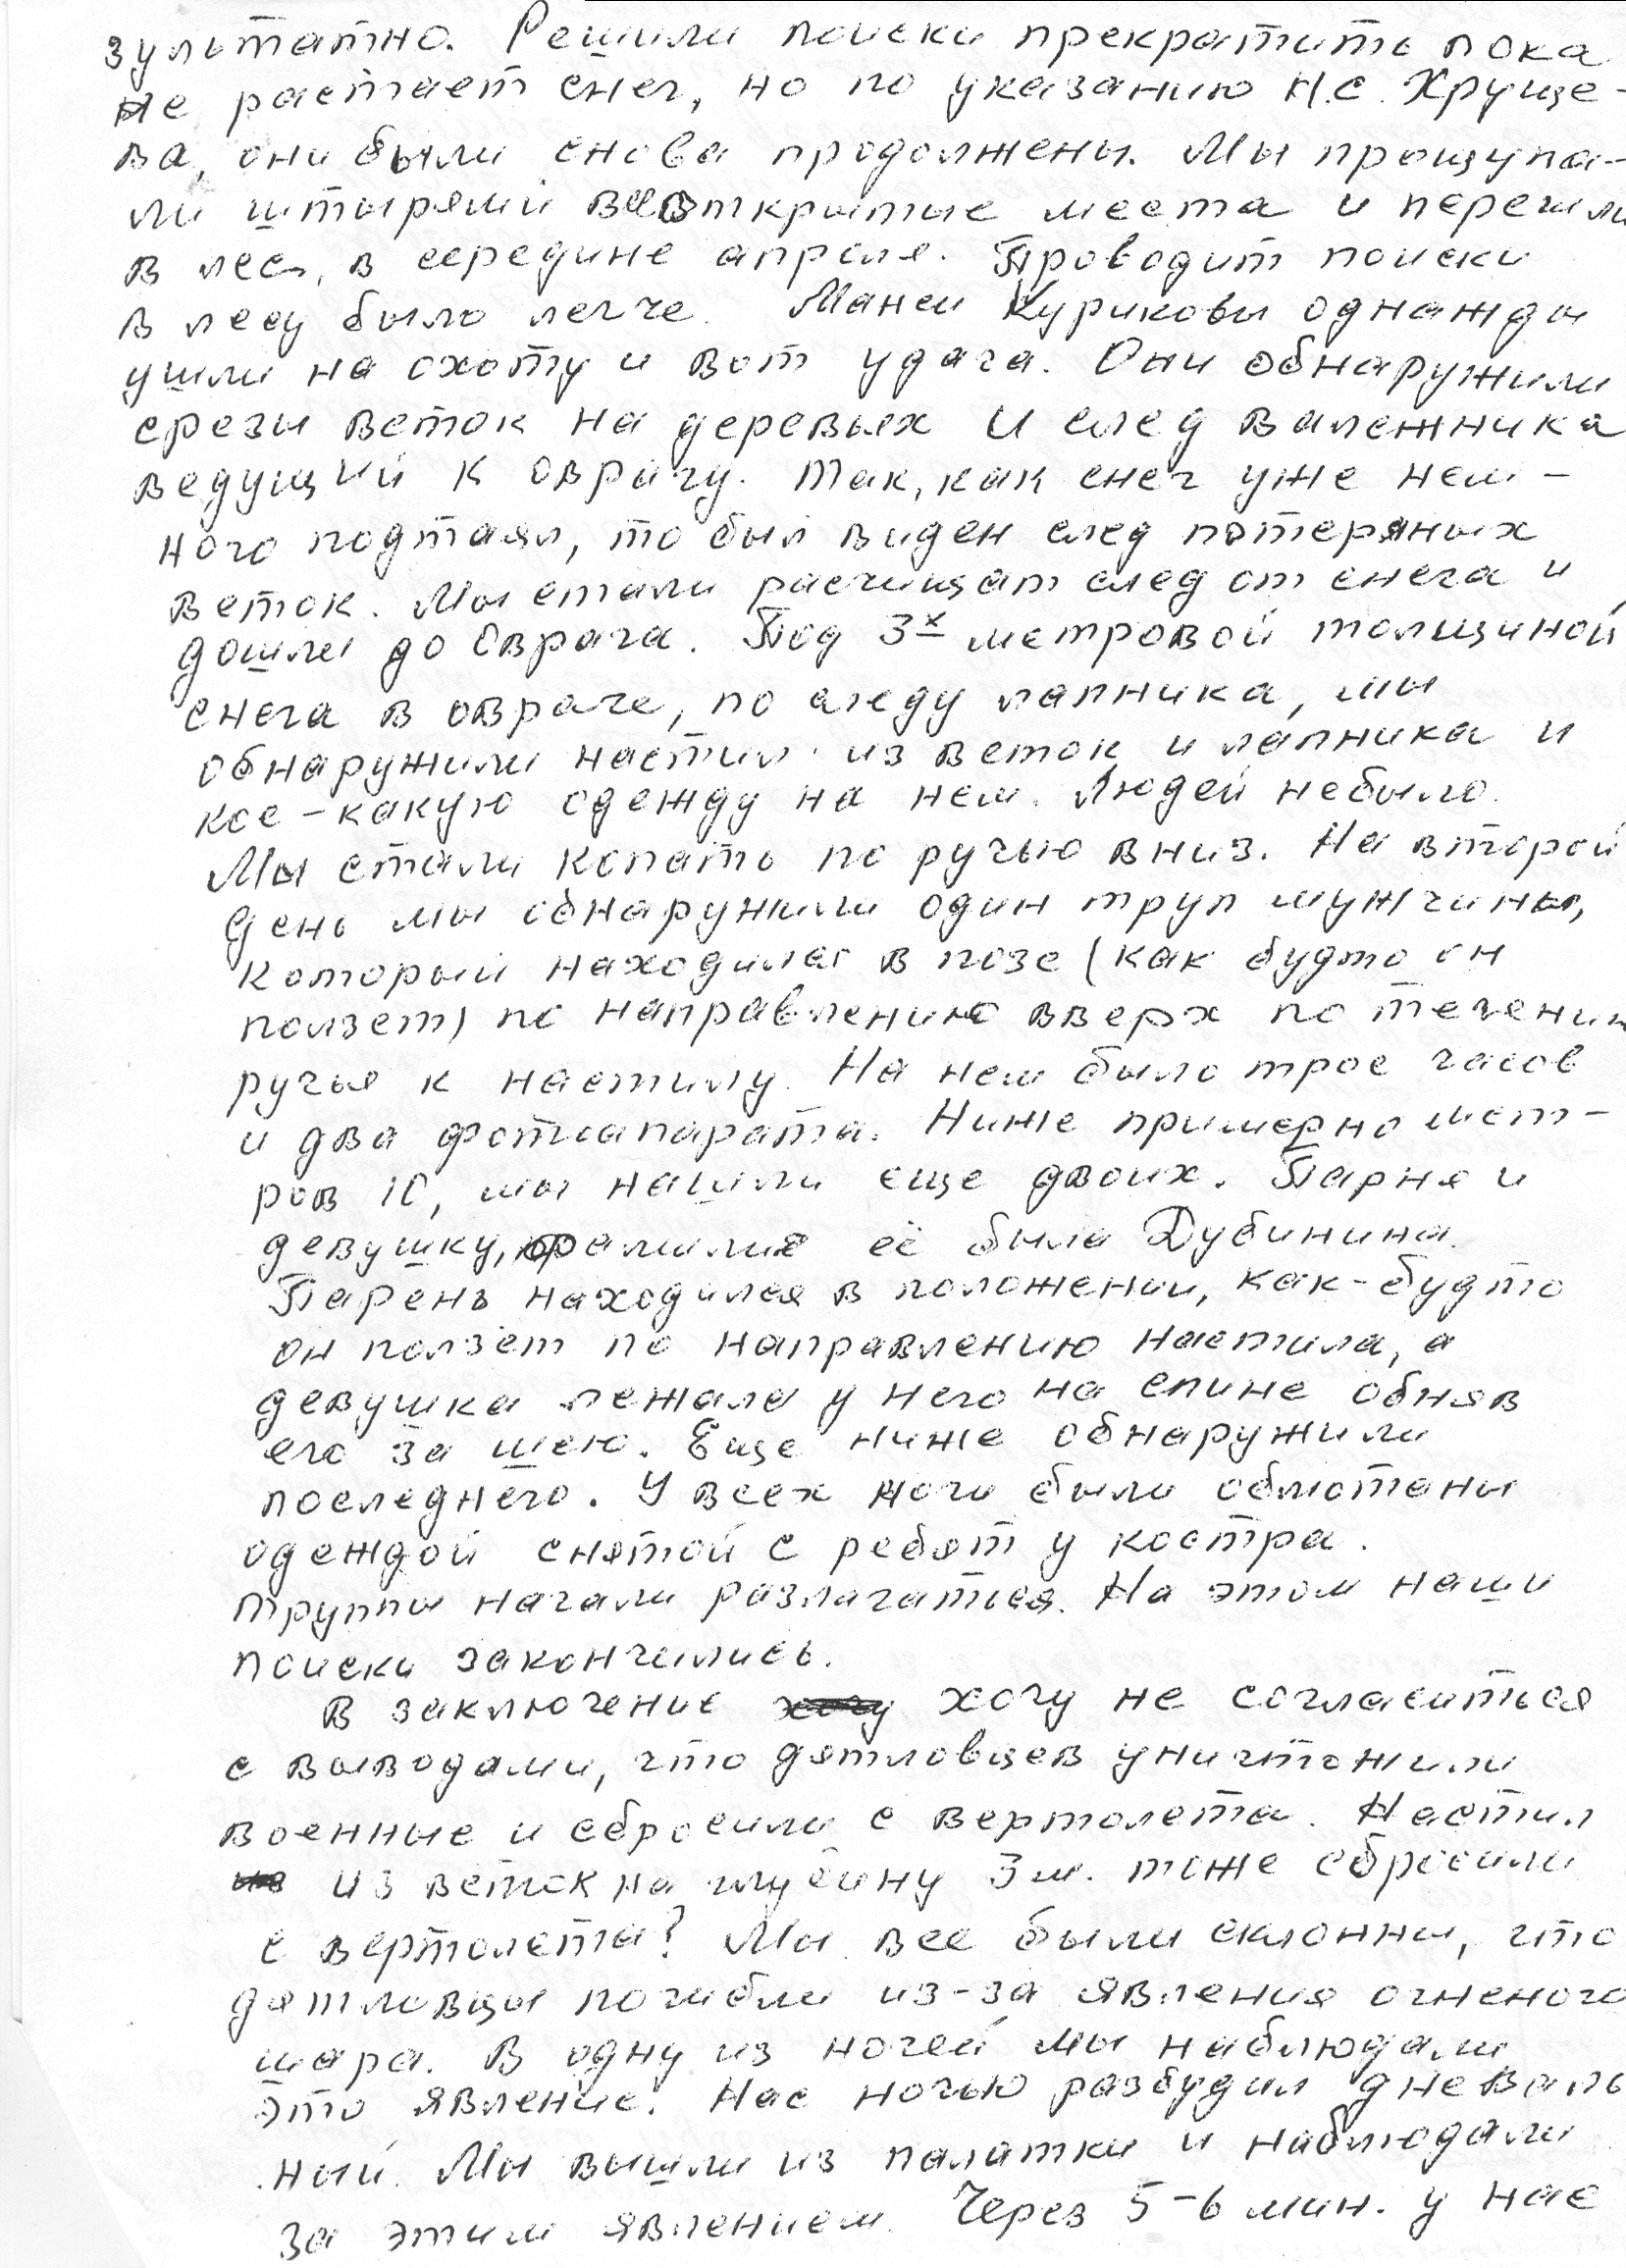 зультатно. Решили поиски прекратить пока
не растает снег, но по указанию Н.С. Хруще-
ва, они были снова продолжены. Мы прощупа-
ли штырями все открытые места и перешли
в лес, в середине апреля. Проводит поиски
в лесу было легче. Манси Куриковы однажды
ушли на охоту и вот удача. Они обнаружили
срезы веток на деревьях и след валежника
ведущий к оврагу. Так, как снег уже нем-
ного подтаял, то был виден след потеряных
веток. Мы стали расчищат след от снега и
дошли до оврага. Под 3х метровой толщиной
снега в овраге, по следу лапника, мы
обнаружили настил из веток и лапника и
кое-какую одежду на нем. Людей небыло.
Мы стали копать по ручью вниз. На второй
день мы обнаружили один труп мужчины,
который находилас в позе (как будто он
ползет) по направлению вверх по течению
ручья к настилу. На нем было трое часов
и два фотоапарата. Ниже примерно мет-
ров 10, мы нашли еще двоих. Парня и
девушку, фамилие её была Дубинина.
Парень находился в положении, как-будто
он ползет по направлению настила, а
девушка лежала у него на спине обняв
его за шею. Еще ниже обнаружили
последнего. У всех ноги были облютаны
одеждой снятой с ребят у костра.
Труппы начали разлагаться. На этом наши
поиски закончились.
В заключение хочу не согласиться
с выводами, что дятловцев уничтожили
военные и сбросили с вертолета. Настил
из веток на глубину 3 м. тоже сбросили
с вертолета? Мы все были склонны, что
дятловцы погибли из-за явления огненого
шара. В одну из ночей мы наблюдали
это явление. Нас ночью разбудил дневаль
ный. Мы вышли из палатки и наблюдали
за этим явлением. Через 5-6 мин. у нас